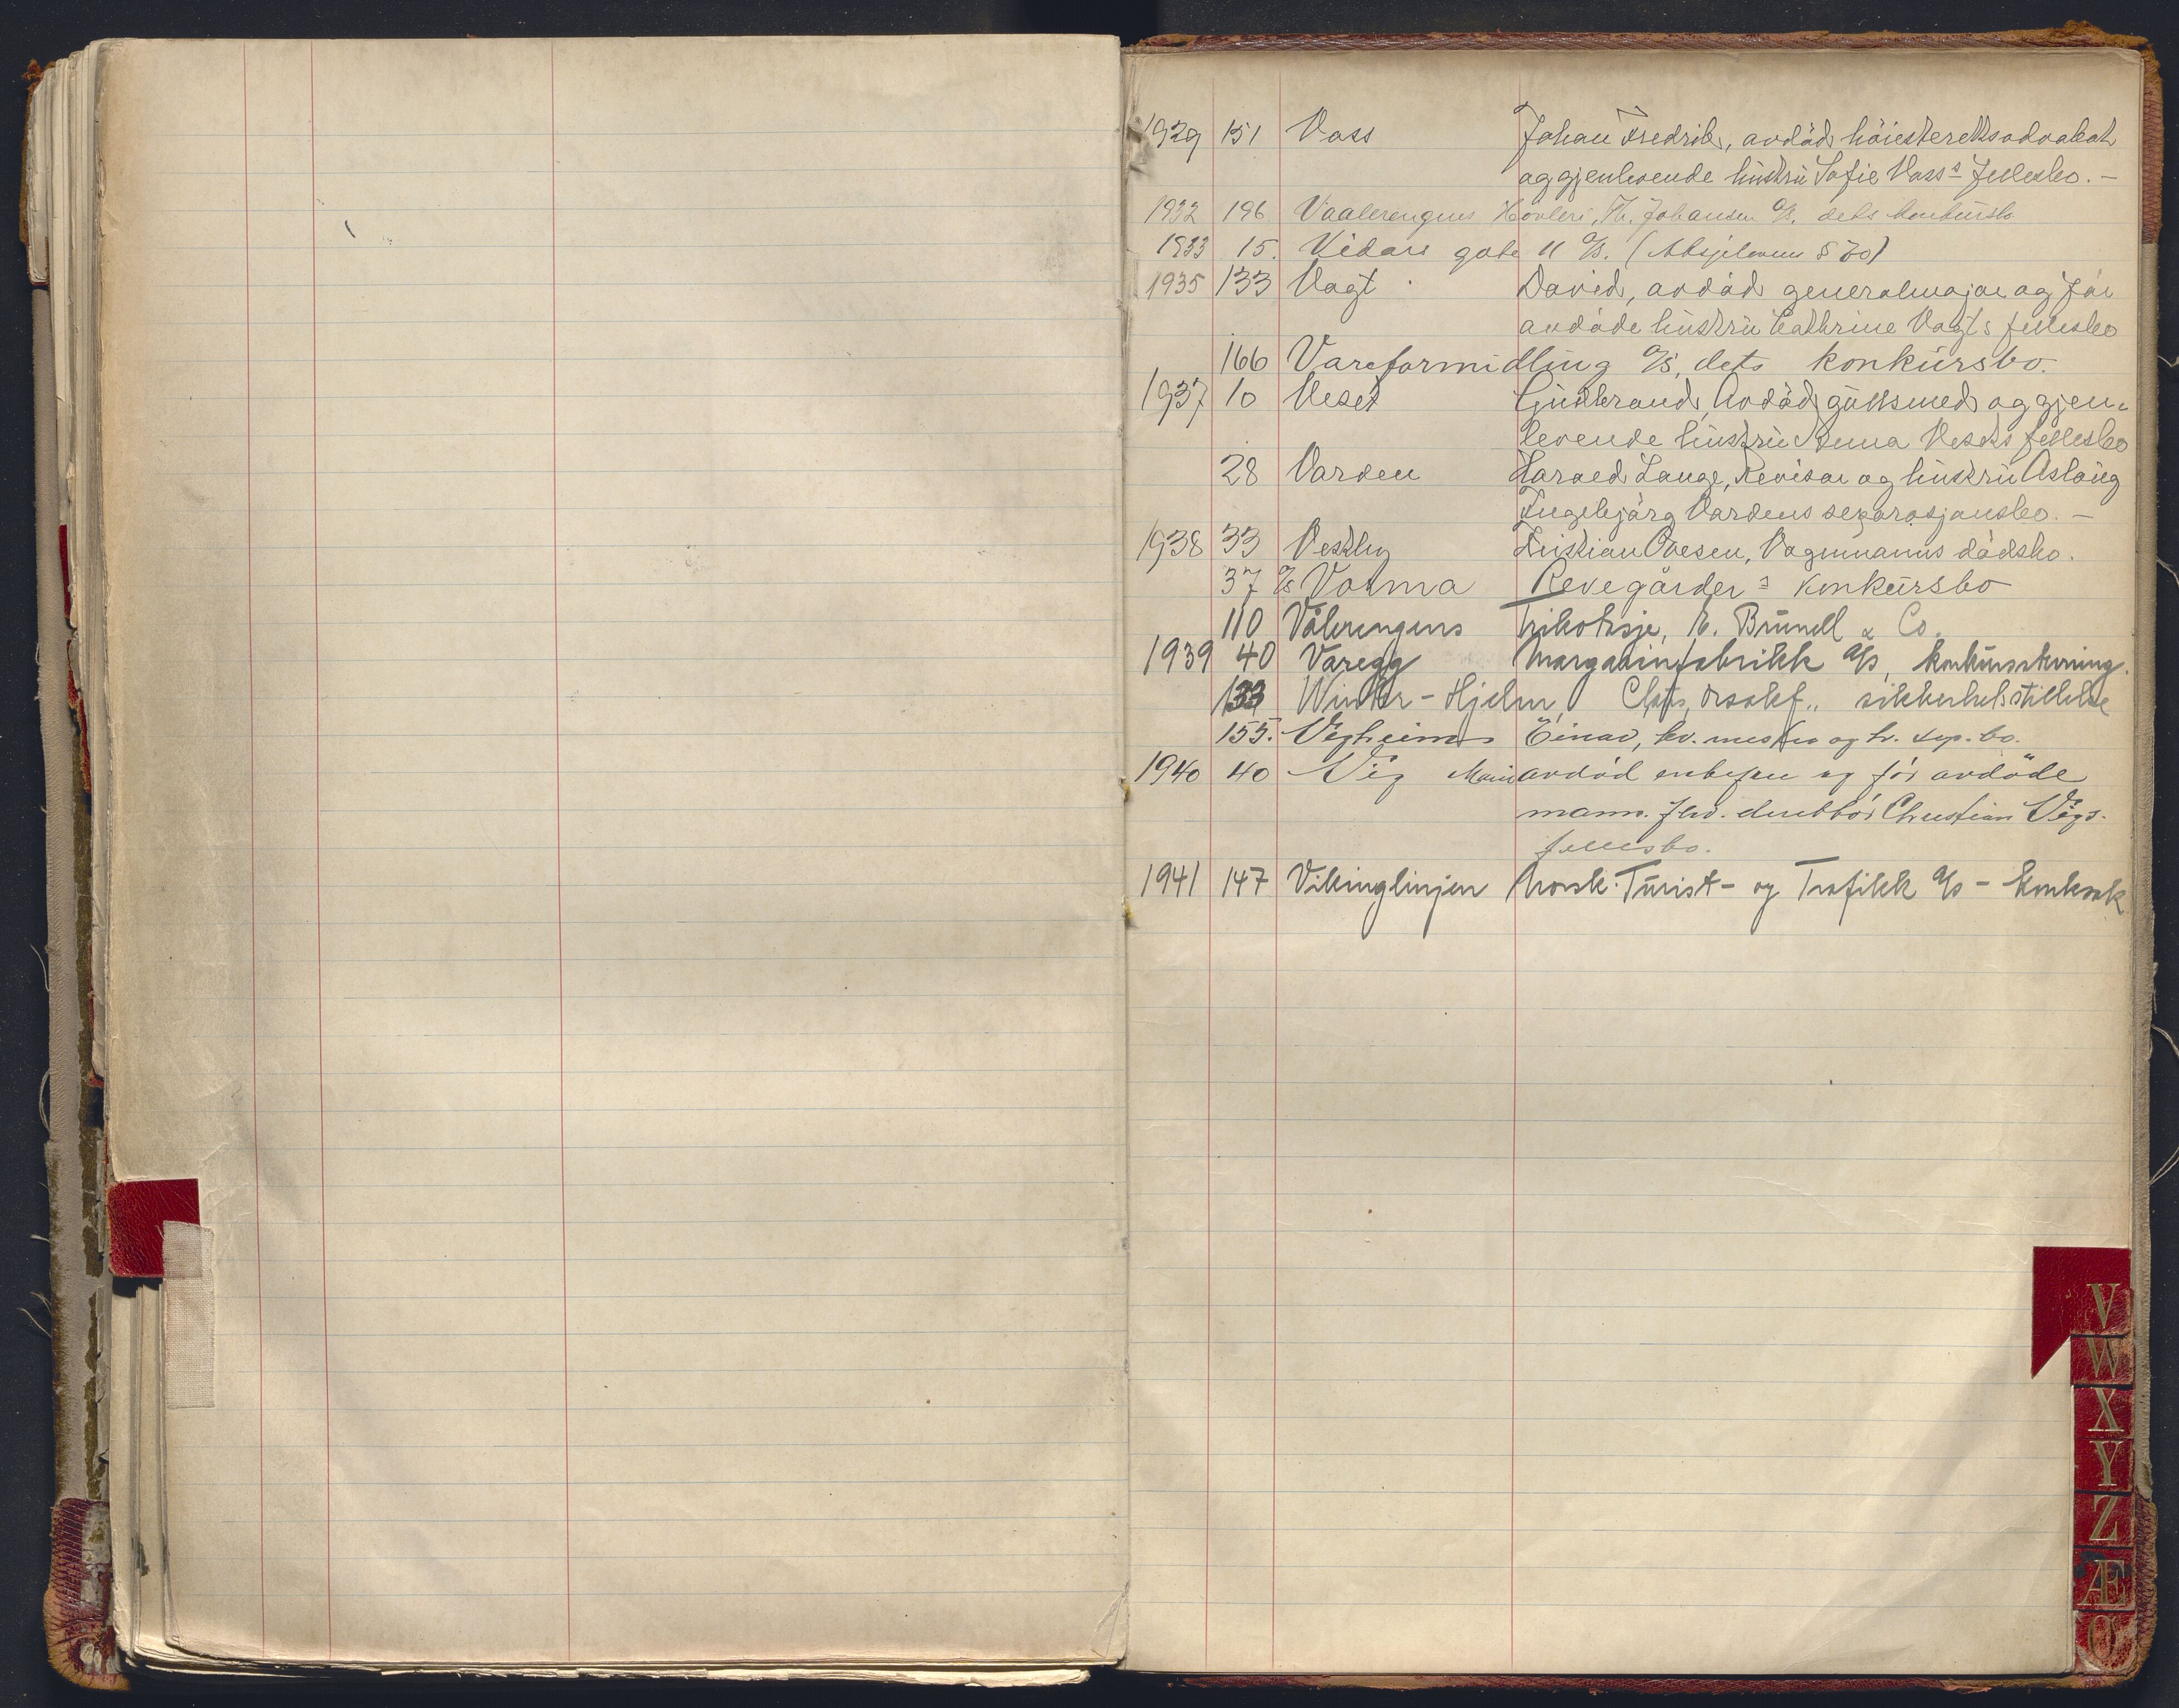 1929 151 Voss Johan Fredrik, avdöd höiesterettsadvokat
og gjenlevende hustru Sofie Voss's fellesbo. –
1932 196 Vaalerengens Høvleri, Th. Johansen A/S. dets konkursbo
1933 15. Vidars gate 11 A/S. (Aksjeloven § 70)
1935 133 Vagt David, avdöd generalmajor og för
avdöde hustru Cathrine Vagts fellesbo
166 Vareformidling A/S, dets konkursbo.
1937 10 Veset Gudbrand, Avdöd gullsmed og gjen-
levende hustru Anna Vesets fellesbo
28 Varden Harald Lange, Revisor og hustru Aslaug
Ingebjörg Vardens separasjonsbo. –
1938 33 Vestby Kristian Ovesen, Vognmanns dödsbo.
37 A/S Votma Revegårder's konkursbo
110 Vålerengens trikotasje, E. Brunell & Co.
1939 40 Varegg Margarinfabrikk A/S, konkursåkning.
133 Winter-Hjelm, orsakf., sikkerhetsstillelse
155. Vegheim Einar, og h. sep. bo.
1940 40 Vig Marie avdöd enkefru og för avdöde
mann. fhv. Christian Vigs.
fellesbo.
1941 147 Vikinglinjen Norsk Turist- og Trafikk A/S – konkssak
V
W
X
Y
Z
Æ
Ø